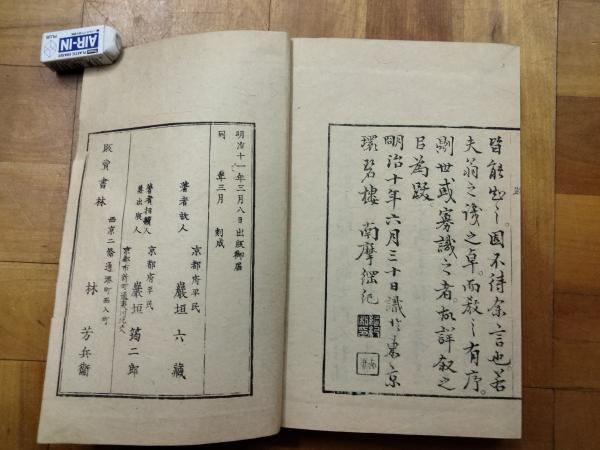 皆能出之。因不待余言也。若
夫翁之識之卓。而教之有序。
則世或寡識之者。故詳叙之
目為跋。
明治十年六月三十日識於東京
環碧樓 南摩綱紀
明治十一年三月八日出版御届
同 年三月 刻成
著者故人 京都府平民 巖垣六藏
著者相續人
兼出版人
京都府平民 巖垣
二郎
販賣書林
西京二條通
町西入町
林 芳兵衛
AIR-IN
PLASTIC ERASER
PLUS